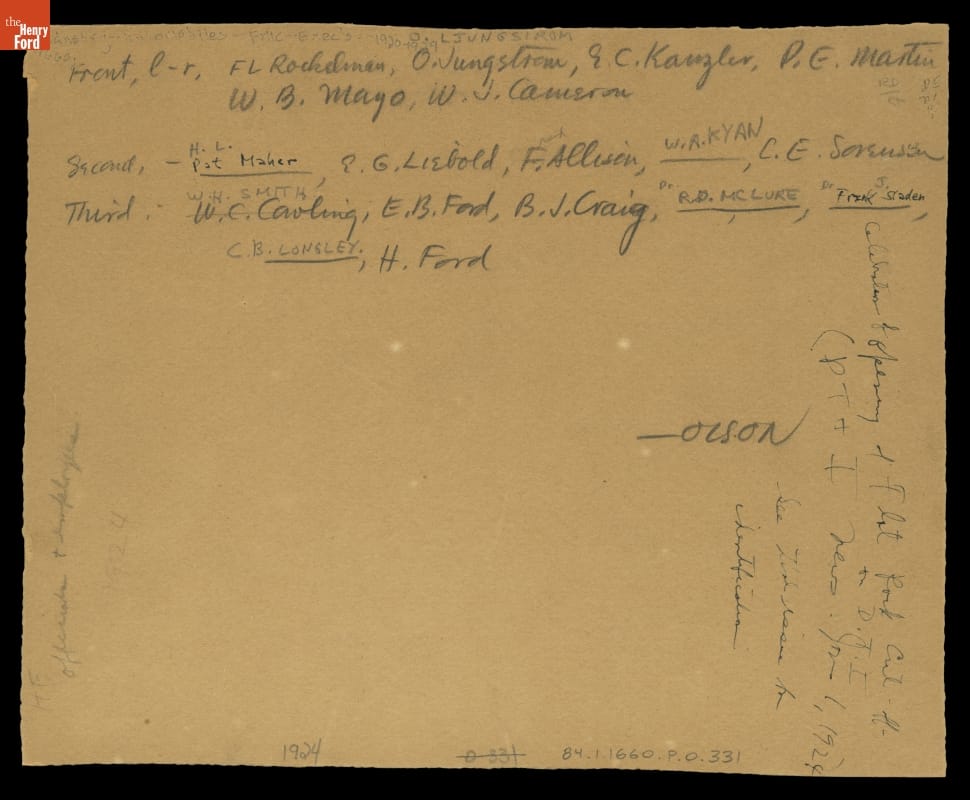 the
Henry
Ford
Exec's - 1920-1929 O. LJUNGSTROM
Front, l-r, FL Rockelman, O. Jungstrom, E. C. Kanzler, P. E. Martin
W. B. Mayo, W. J. Cameron
H. L.
W. A. RYAN
Second, - Pat Maher, E. G. Liebold, F. Allison, , C. E. Sorensen
W. H. SMITH
Third :- W. C. Cowling, E. B. Ford, B. J. Craig, Dr. R.D. MCLURE, Dr. Frank J. Sladen,
C. B. LONGLEY, H. Ford
Celebration of opening of Flat Rock Cut-off
on D. T. I
(D T + I News. Jan 1, 1924
See this issue for
identification
—OLSON
officials + employees
HF
1924
1924
O 331
84.1.1660.P.O.331